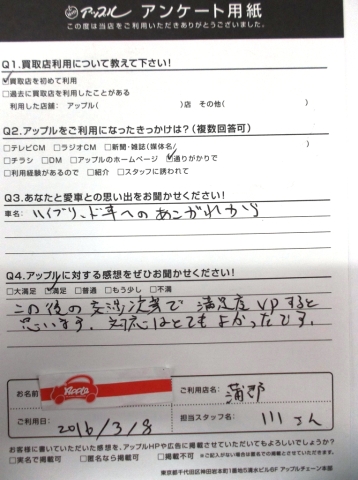 アップル アンケート用紙
この度は当店をご利用いただきありがとうございました。
Q1.買取店利用について教えて下さい!
☑買取店を初めて利用
□過去に買取店を利用したことがある
利用した店舗: アップル( )店 その他( )
Q2.アップルをご利用になったきっかけは?(複数回答可)
□テレビCM □ラジオCM □新聞・雑誌(媒体名 )
□チラシ □DM □アップルのホームページ ☑通りがかりで
□利用経験があるので □紹介 □スタッフに誘われて
Q3.あなたと愛車との思い出をお聞かせください!
車名: ハイブリッド車へのあこがれから
Q4.アップルに対する感想をぜひお聞かせください!
□大満足 ☑満足 □普通 □もう少し □不満
この後の交渉次第で 満足度UPすると
思います。対応はとてもよかったです。
お名前
Apple
ご利用店名: 蒲郡
ご利用日: 2016/3/8
担当スタッフ名: 川さん
お客様に書いていただいた感想を、アップルHPや広告に掲載させていただいてもよろしいでしょうか?
□実名で掲載可 □匿名なら掲載可 □掲載不可 ※ご記入がない場合は匿名での掲載とさせていただきます。
東京都千代田区神田岩本町1番地5清水ビル6F アップルチェーン本部